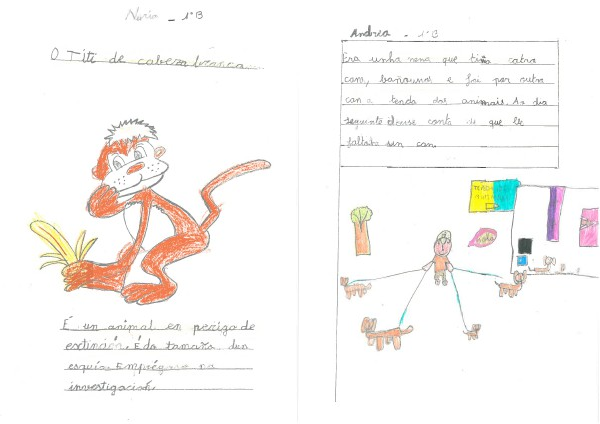 Nuria - 1ºB
O Tití de cabeza branca
É un animal en perigo de
extinción. É do tamaño dun
esquío. Emprégase na
investigación.
Andrea - 1ºB
Era unha nena que tiña catro
cans, bañounos e foi por outro
can a tenda dos animais. Ao dia
seguinte douse conta de que lle
faltaba un can.